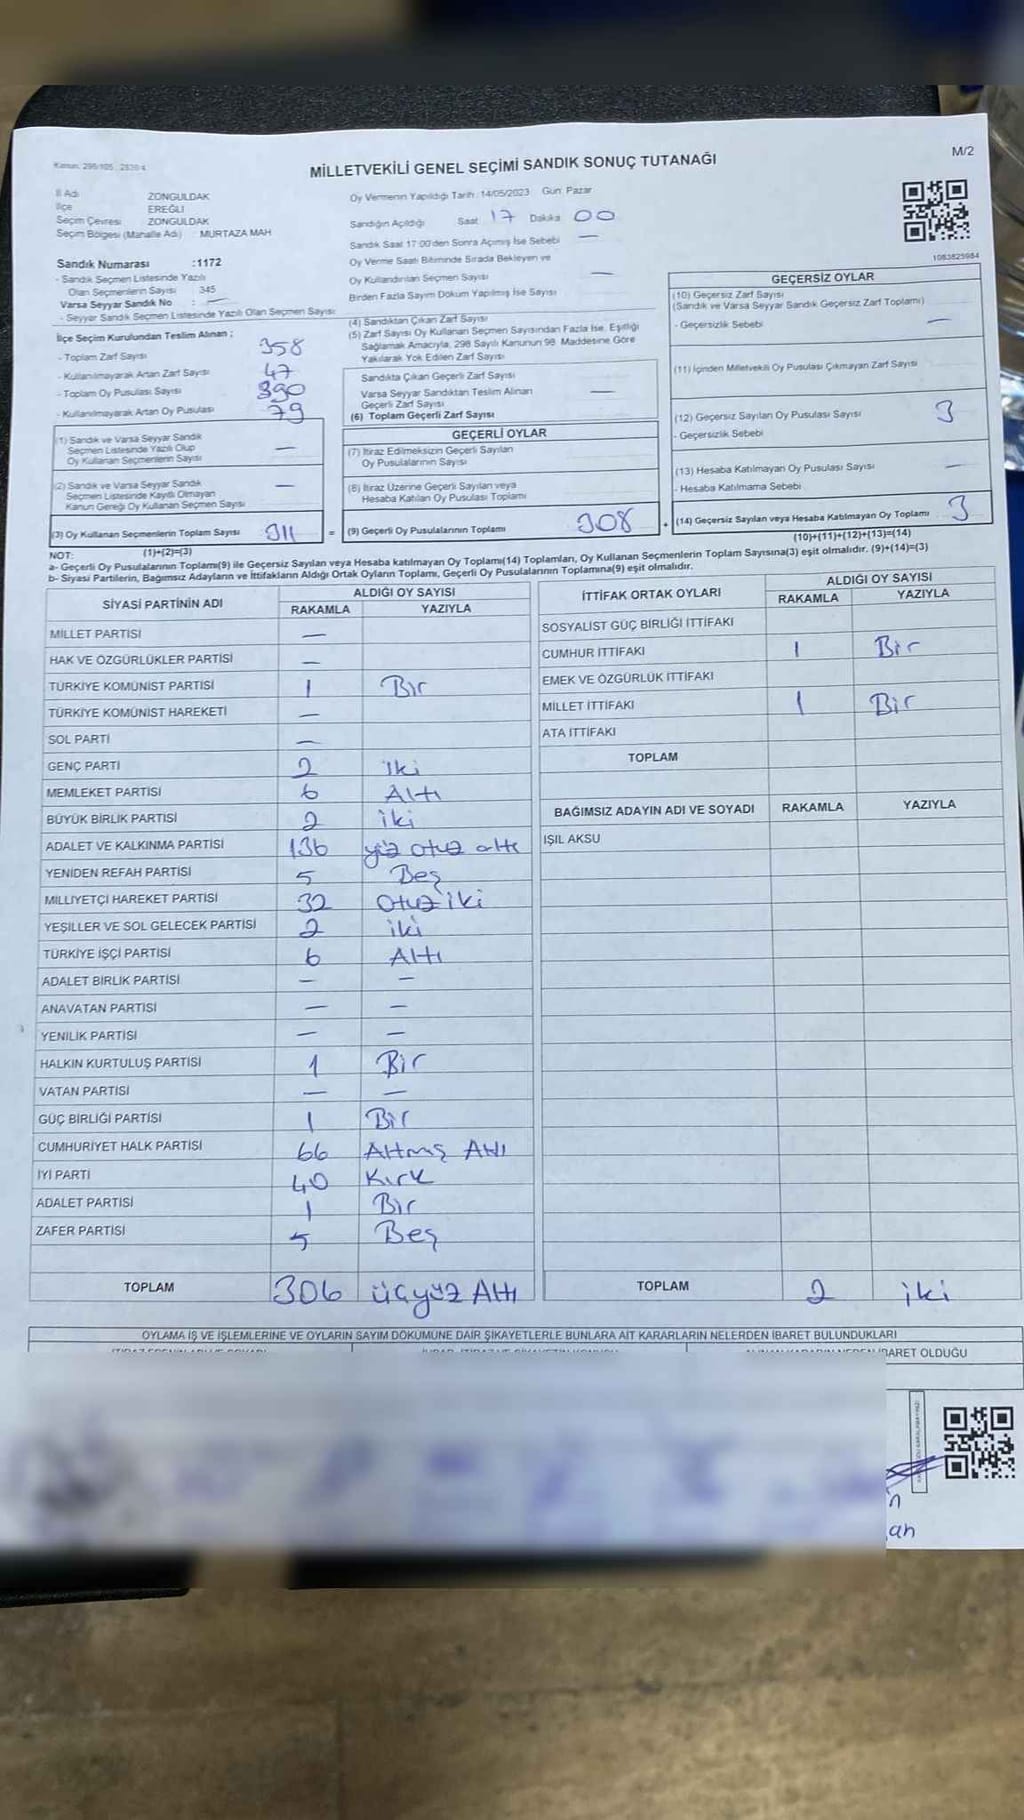 Kanun: 298/105, 2839/4
MİLLETVEKİLİ GENEL SEÇİMİ SANDIK SONUÇ TUTANAĞI
M/2
İl Adı ZONGULDAK
İlçe EREĞLİ
Seçim Çevresi ZONGULDAK
Seçim Bölgesi (Mahalle Adı) : MURTAZA MAH
Sandık Numarası :1172
- Sandık Seçmen Listesinde Yazılı
Olan Seçmenlerin Sayısı 345
Varsa Seyyar Sandık No : —
- Seyyar Sandık Seçmen Listesinde Yazılı Olan Seçmen Sayısı
Oy Vermenin Yapıldığı Tarih : 14/05/2023 Gün: Pazar
Sandığın Açıldığı Saat 17 Dakika 00
Sandık Saat 17:00'den Sonra Açılmış İse Sebebi —
Oy Verme Saati Bitiminde Sırada Bekleyen ve
Oy Kullandırılan Seçmen Sayısı —
Birden Fazla Sayım Döküm Yapılmış İse Sayısı
1083825984
İlçe Seçim Kurulundan Teslim Alınan ;
- Toplam Zarf Sayısı 358
- Kullanılmayarak Artan Zarf Sayısı 47
- Toplam Oy Pusulası Sayısı 390
- Kullanılmayarak Artan Oy Pusulası 79
(1) Sandık ve Varsa Seyyar Sandık
Seçmen Listesinde Yazılı Olup
Oy Kullanan Seçmenlerin Sayısı —
(2) Sandık ve Varsa Seyyar Sandık
Seçmen Listesinde Kayıtlı Olmayan
Kanun Gereği Oy Kullanan Seçmen Sayısı —
(3) Oy Kullanan Seçmenlerin Toplam Sayısı 311 =
(1)+(2)=(3)
(4) Sandıktan Çıkan Zarf Sayısı
(5) Zarf Sayısı Oy Kullanan Seçmen Sayısından Fazla İse, Eşitliği
Sağlamak Amacıyla, 298 Sayılı Kanunun 98. Maddesine Göre
Yakılarak Yok Edilen Zarf Sayısı
Sandıkta Çıkan Geçerli Zarf Sayısı
Varsa Seyyar Sandıktan Teslim Alınan
Geçerli Zarf Sayısı —
(6) Toplam Geçerli Zarf Sayısı
GEÇERLİ OYLAR
(7) İtiraz Edilmeksizin Geçerli Sayılan
Oy Pusulalarının Sayısı
(8) İtiraz Üzerine Geçerli Sayılan veya
Hesaba Katılan Oy Pusulası Toplamı
(9) Geçerli Oy Pusulalarının Toplamı 308 +
GEÇERSİZ OYLAR
(10) Geçersiz Zarf Sayısı
(Sandık ve Varsa Seyyar Sandık Geçersiz Zarf Toplamı)
- Geçersizlik Sebebi —
(11) İçinden Milletvekili Oy Pusulası Çıkmayan Zarf Sayısı —
(12) Geçersiz Sayılan Oy Pusulası Sayısı 3
- Geçersizlik Sebebi
(13) Hesaba Katılmayan Oy Pusulası Sayısı —
- Hesaba Katılmama Sebebi
(14) Geçersiz Sayılan veya Hesaba Katılmayan Oy Toplamı 3
(10)+(11)+(12)+(13)=(14)
NOT:
a- Geçerli Oy Pusulalarının Toplamı(9) ile Geçersiz Sayılan veya Hesaba katılmayan Oy Toplamı(14) Toplamları, Oy Kullanan Seçmenlerin Toplam Sayısına(3) eşit olmalıdır. (9)+(14)=(3)
b- Siyasi Partilerin, Bağımsız Adayların ve İttifakların Aldığı Ortak Oyların Toplamı, Geçerli Oy Pusulalarının Toplamına(9) eşit olmalıdır.
SİYASİ PARTİNİN ADI ALDIĞI OY SAYISI
RAKAMLA YAZIYLA
MİLLET PARTİSİ —
HAK VE ÖZGÜRLÜKLER PARTİSİ —
TÜRKİYE KOMÜNİST PARTİSİ 1 Bir
TÜRKİYE KOMÜNİST HAREKETİ —
SOL PARTİ —
GENÇ PARTİ 2 iki
MEMLEKET PARTİSİ 6 Altı
BÜYÜK BİRLİK PARTİSİ 2 iki
ADALET VE KALKINMA PARTİSİ 136 yüz otuz altı
YENİDEN REFAH PARTİSİ 5 Beş
MİLLİYETÇİ HAREKET PARTİSİ 32 Otuz iki
YEŞİLLER VE SOL GELECEK PARTİSİ 2 iki
TÜRKİYE İŞÇİ PARTİSİ 6 Altı
ADALET BİRLİK PARTİSİ — —
ANAVATAN PARTİSİ — —
YENİLİK PARTİSİ — —
HALKIN KURTULUŞ PARTİSİ 1 Bir
VATAN PARTİSİ — —
GÜÇ BİRLİĞİ PARTİSİ 1 Bir
CUMHURİYET HALK PARTİSİ 66 Altmış Altı
İYİ PARTİ 40 Kırk
ADALET PARTİSİ 1 Bir
ZAFER PARTİSİ 5 Beş
TOPLAM 306 üçyüz Altı
İTTİFAK ORTAK OYLARI ALDIĞI OY SAYISI
RAKAMLA YAZIYLA
SOSYALİST GÜÇ BİRLİĞİ İTTİFAKI
CUMHUR İTTİFAKI 1 Bir
EMEK VE ÖZGÜRLÜK İTTİFAKI
MİLLET İTTİFAKI 1 Bir
ATA İTTİFAKI
TOPLAM
BAĞIMSIZ ADAYIN ADI VE SOYADI RAKAMLA YAZIYLA
IŞIL AKSU
TOPLAM 2 iki
OYLAMA İŞ VE İŞLEMLERİNE VE OYLARIN SAYIM DÖKÜMÜNE DAİR ŞİKAYETLERLE BUNLARA AİT KARARLARIN NELERDEN İBARET BULUNDUKLARI
İBARET OLDUĞU